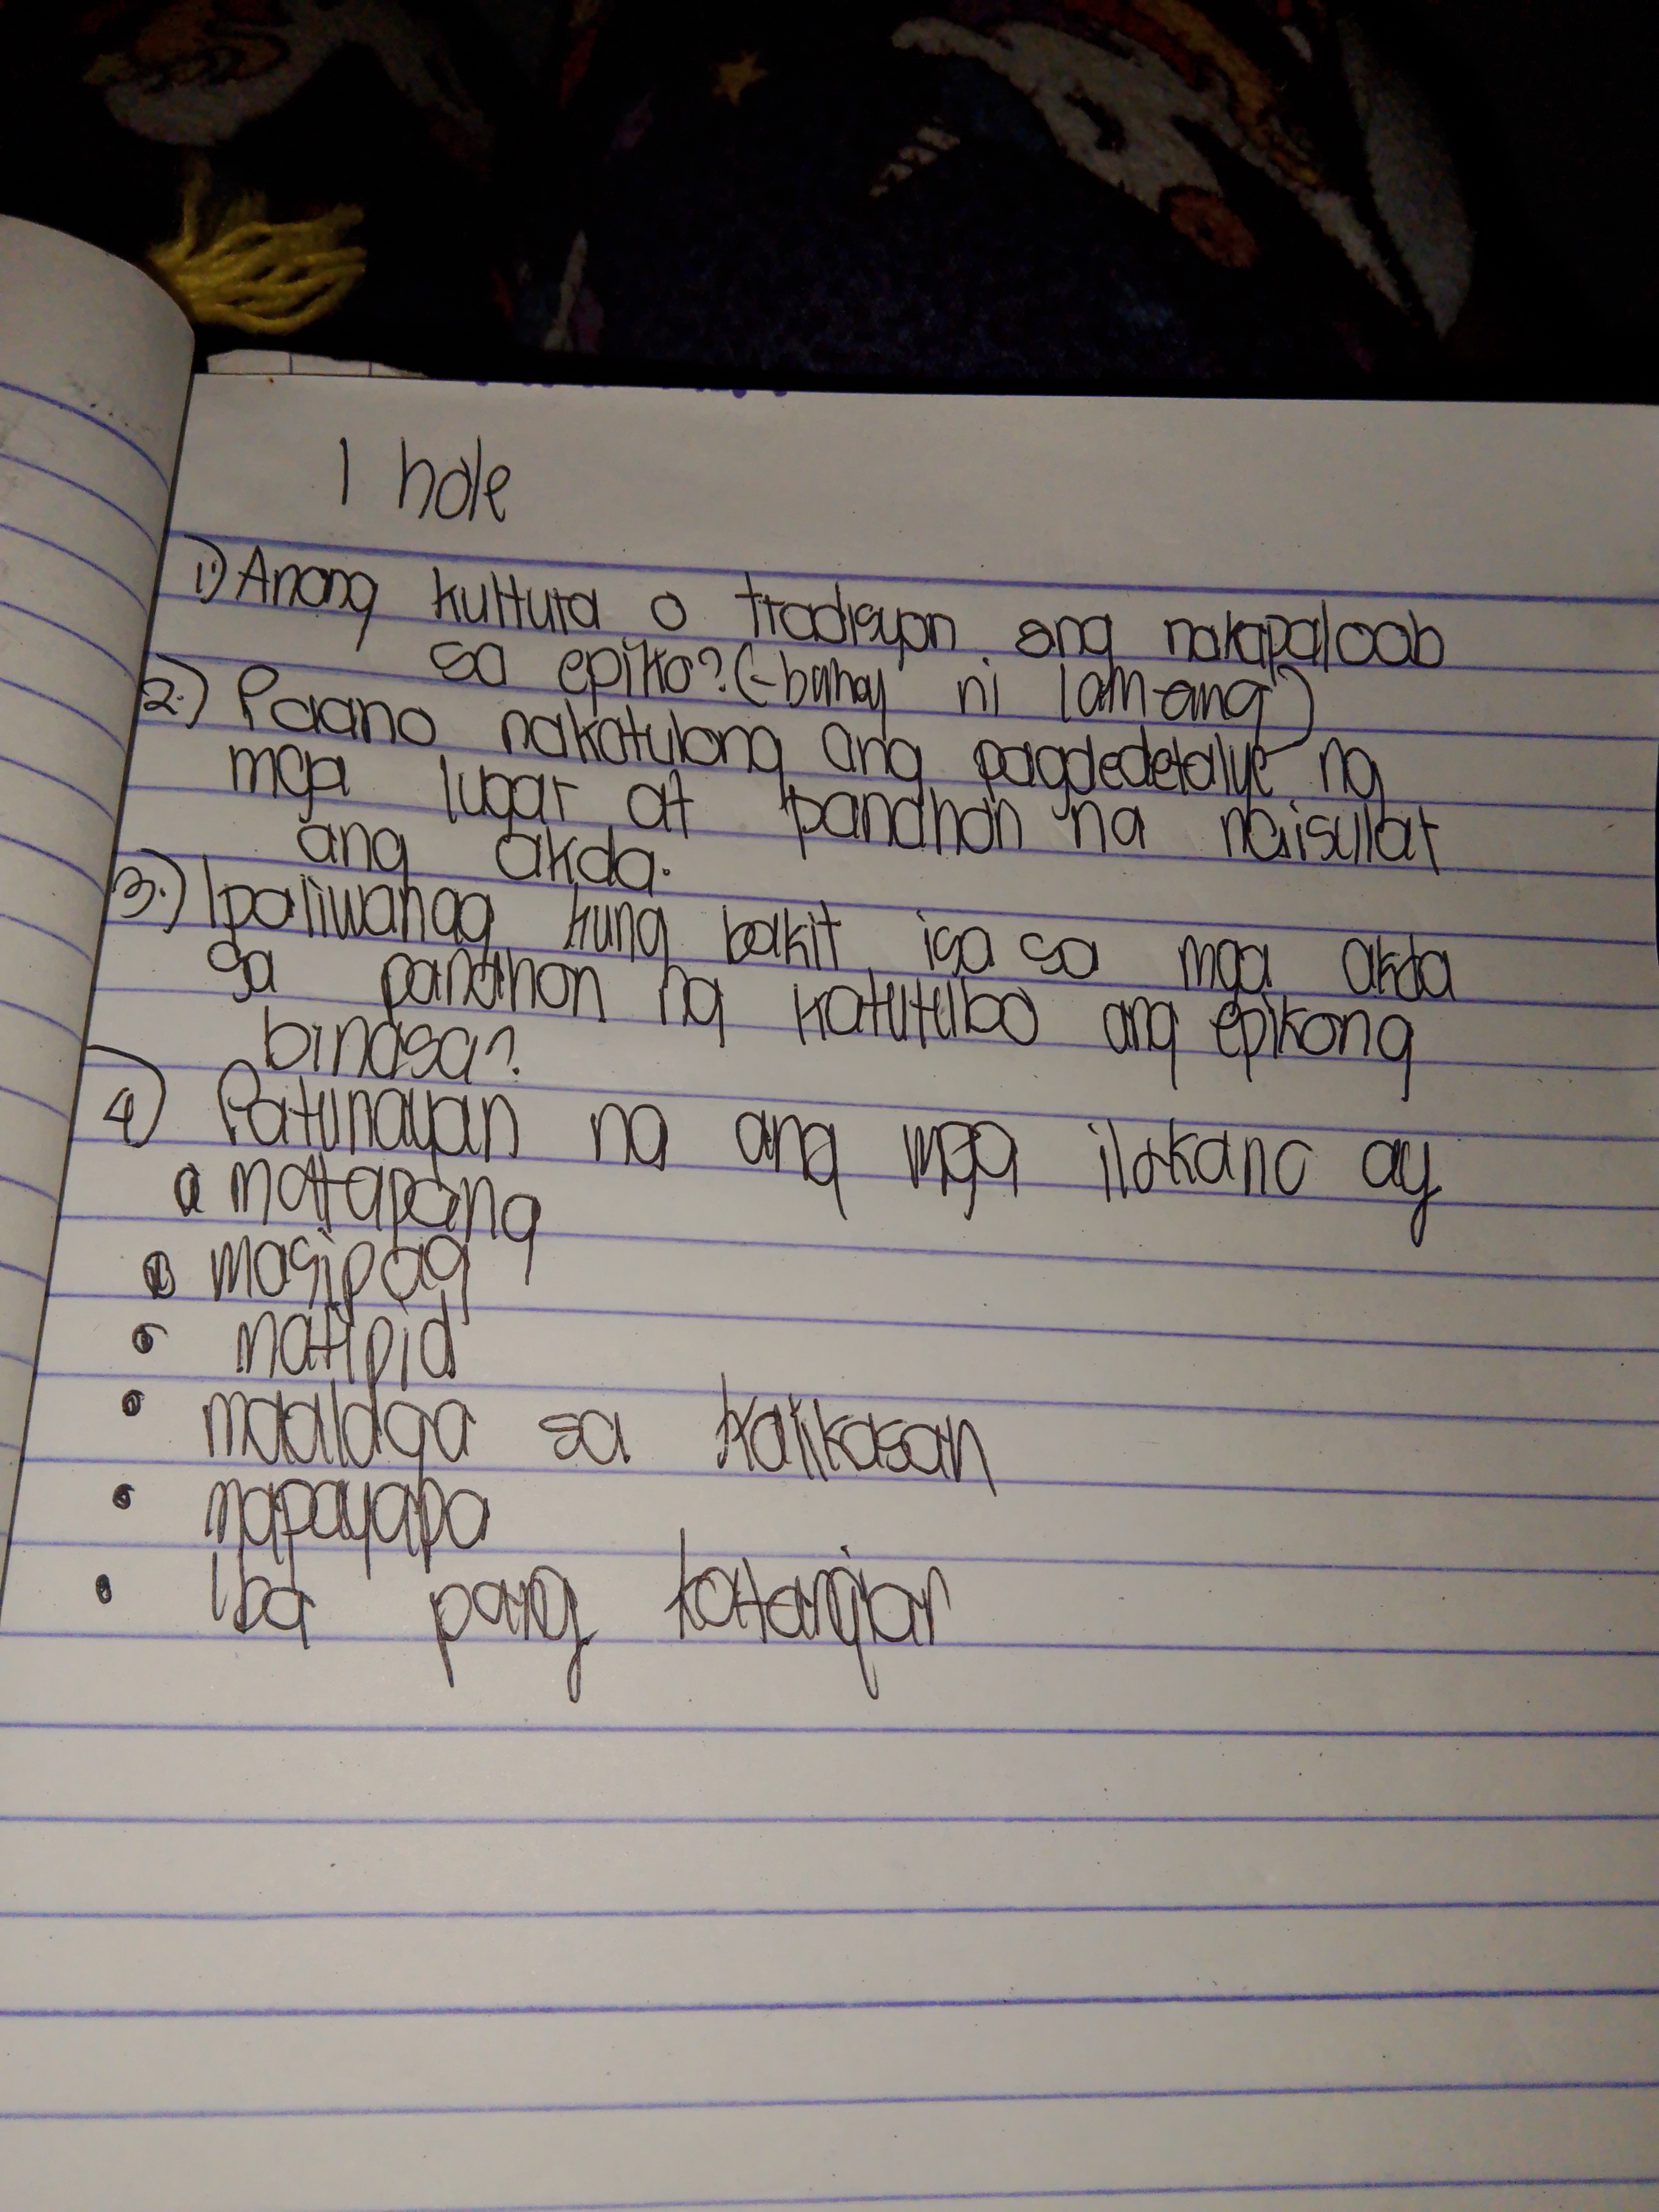 1 hole
1.) Anong kultura o tradisyon ang nakapaloob
sa epiko? (-buhay ni lam-ang)
2.) Paano nakatulong ang pagdedetalye ng
mga lugar at panahon na naisulat
ang akda.
3.) Ipaliwanag kung bakit isa sa mga akda
sa panahon ng katutubo ang epikong
binasa?
4) Patunayan na ang mga ilokano ay
• matapang
• masipag
• matipid
• maalaga sa kalikasan
• mapayapa
• iba pang katangian